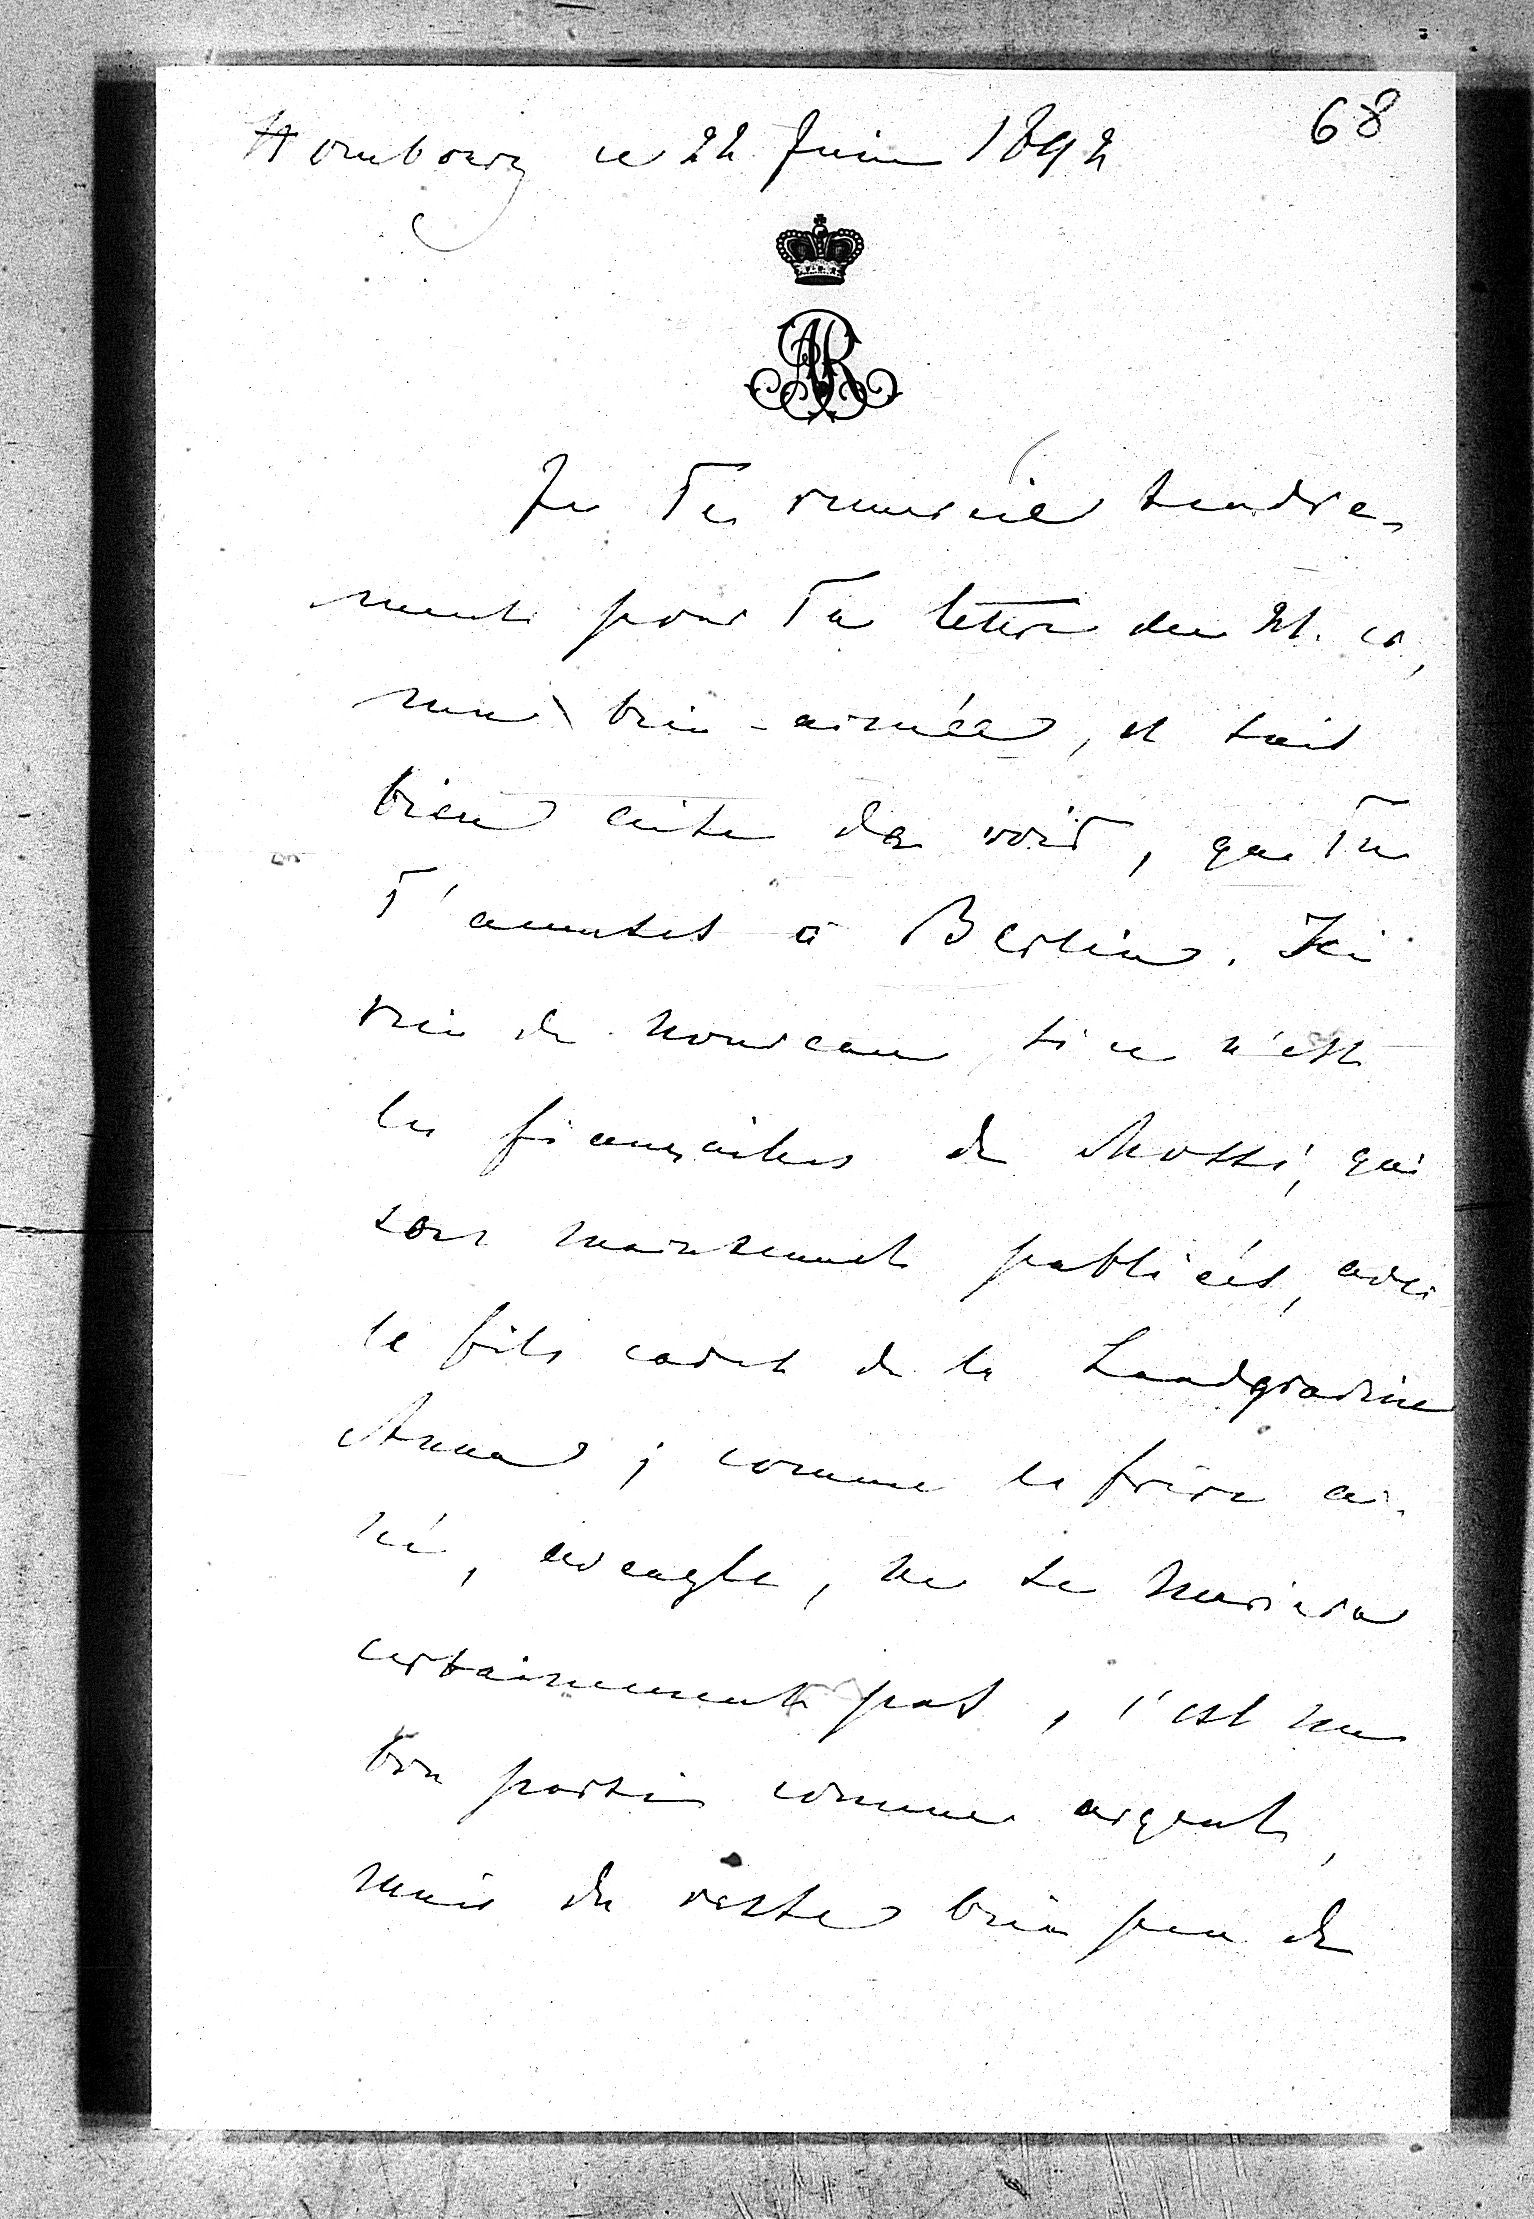 68
Hombourg ce 22 Juin 1892
AR
Je Te remercie tendre-
ment pour Ta lettre du 21. cr,
ma bien-aimée, et suis
bien aise de voir, que Tu
T'amuses à Berlin. Ici
rien de nouveau, si ce n'est
les fiançailles de Mossi, qui
sont maintenant publiées, avec
le fils cadet de la Landgravine
Anna; comme le frère ai-
né, aveugle, ne se mariera
certainement pas, c'est un
bon parti comme argent,
mais du reste bien peu de